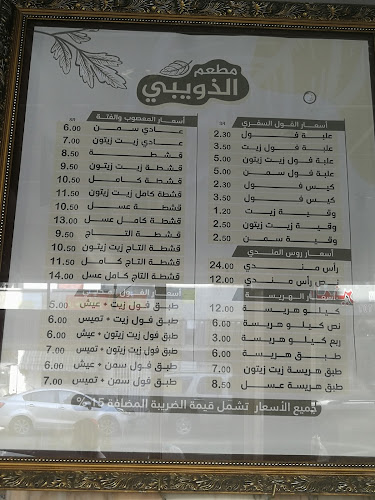 مطعم
الذويبي
أسعار الفول السفري SR
علبة فول 2.30
علبة فول زيت 3.50
علبة فول زيت زيتون 5.00
علبة فول سمن 5.00
كيس فول 2.30
كيس فول زيت 3.50
وقية زيت 1.20
وقية زيت زيتون 2.50
وقية سمن 2.50
أسعار روس المندي
رأس مندي 24.00
نص رأس مندي 12.00
أسعار الهريسة
كيلو هريسة
نص كيلو هريسة
ربع كيلو هريسة 3.00
طبق هريسة 6.00
طبق هريسة زيت زيتون 7.00
طبق هريسة عسل 8.50
أسعار المعصوب والفتة SR
عادي سمن 6.00
عادي زيت زيتون 7.00
قشطة 8.50
قشطة زيت زيتون 9.50
قشطة كامل 10.50
قشطة كامل زيت زيتون 11.50
قشطة عسل 10.50
قشطة كامل عسل 13.00
قشطة التاج 9.50
قشطة التاج زيت زيتون 10.50
قشطة التاج كامل 11.50
قشطة التاج كامل عسل 14.00
أسعار الفول
طبق فول زيت + عيش 5.00
طبق فول زيت + تميس 6.00
طبق فول زيت زيتون + عيش 6.00
طبق فول زيت زيتون + تميس 7.00
طبق فول سمن + عيش 6.00
طبق فول سمن + تميس 7.00
جميع الأسعار تشمل قيمة الضريبة المضافة 15%